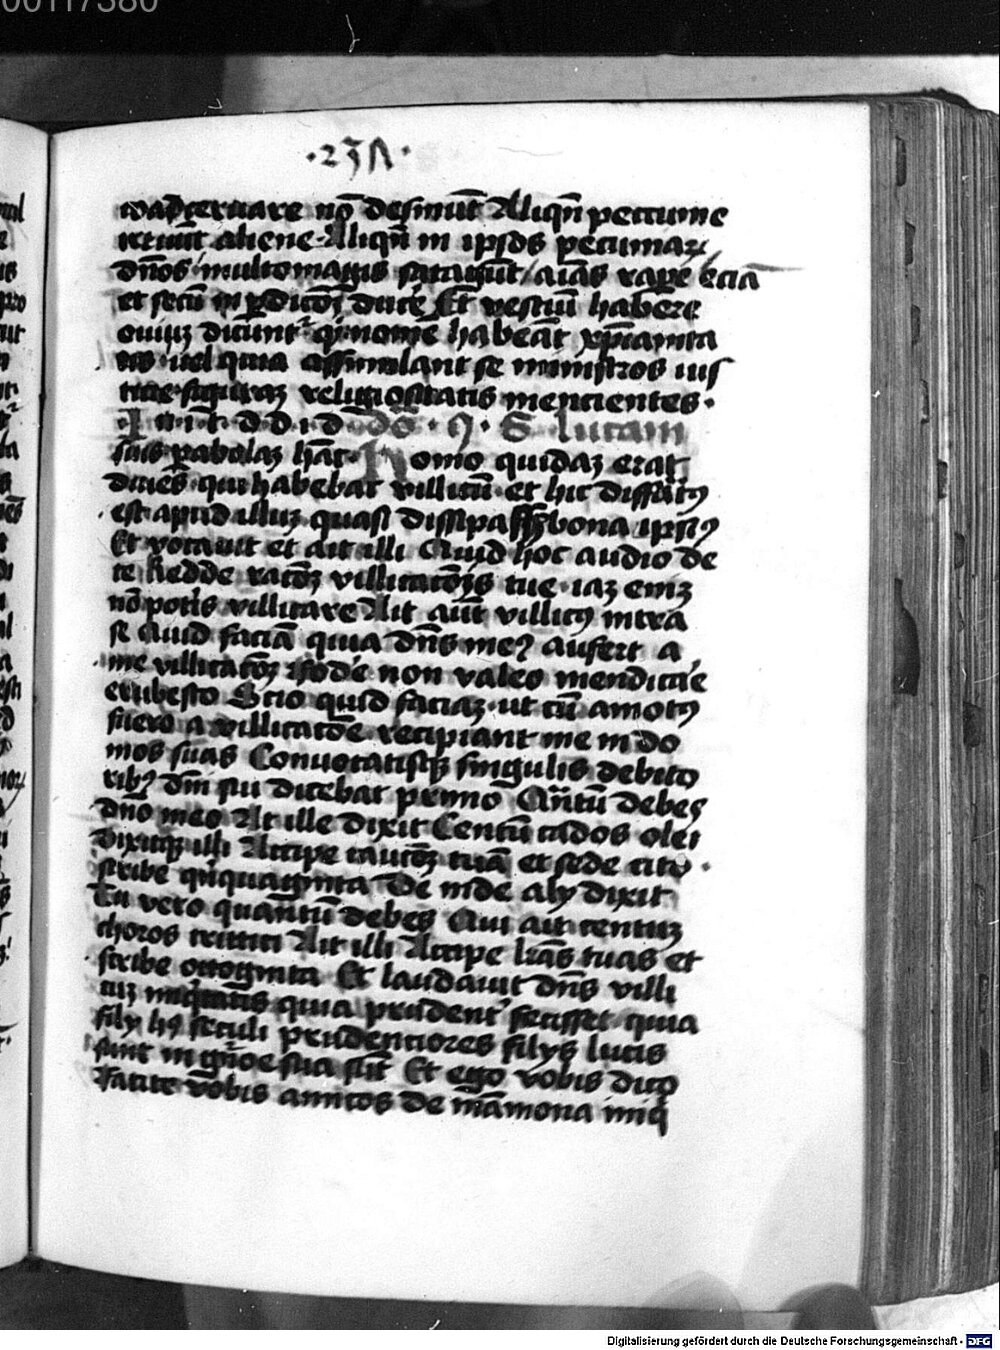 00117380
·23Λ·
nō desinūt Aliqn̄ peccunie
aliene· Aliqn̄ in ipsos pecuniaꝝ
dn̄os multomagis aīas rapē eciā
et secū in ꝑdicōꝫ ducē Et vestitū habere
ouiuꝫ dicunt᷑ qꝛ nomē habeāt xp̄iamta
uel quia assimulant se ministros ius
ticie· religiositatis mencientes·
I n i t d d i d · 9 · S lucam
suis ꝑabolaꝫ hāc· Homo quidaꝫ erat
diues· qui habebat villicū· et hic diffātꝰ
est apud illuꝫ quasi dissipass bona ipsiꝰ
Et vocauit et ait illi Quid hoc audio de
te Redde racōꝫ villicacōis tue· iaꝫ eniꝫ
nō potis villicare Ait aūt villicꝰ intra
se Quid faciā quia dn̄s meꝰ aufert a
me villicacōꝫ fodē non valeo mendicāe
erubesco Scio quid faciaꝫ· ut cū amotꝰ
fuero a villicacōe recipiant me in do
mos suas Conuocatisqꝫ singulis debito
ribꝰ dn̄i sui dicebat primo Qn̄tū debes
dn̄o meo At ille dixit Centū cados olei
Dixitqꝫ illi Accipe caucōꝫ tuā et sede cito·
scribe qn̄quaginta De inde alij dixit
Tu vero quantū debes Qui ait centuꝫ
choros tritici Ait illi Accipe lr̄as tuas et
scribe octoginta Et laudauit dn̄s villi
cuꝫ iniqtatis quia prudent᷑ fecisset· quia
filij hꝰ seculi prudentiores filijs lucis
sunt in gn̄oe sua sūt Et ego vobis dico
Facite vobis amicos de māmona iniq̄
Digitalisierung gefördert durch die Deutsche Forschungsgemeinschaft - DFG